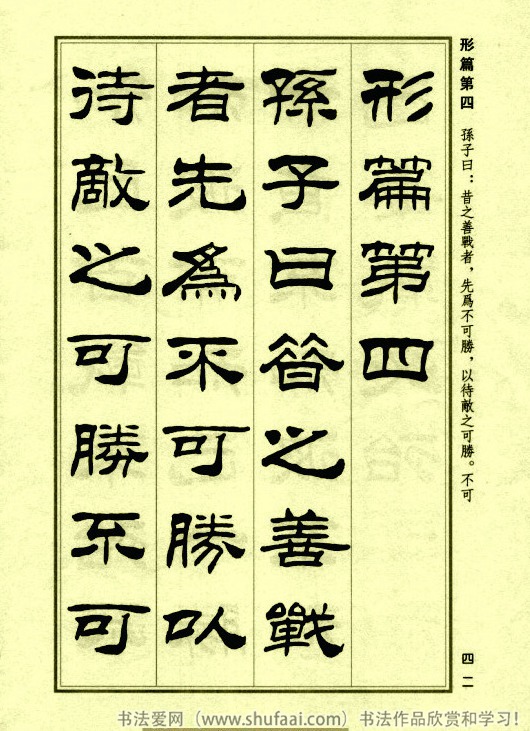 形篇第四 孫子曰：昔之善戰者，先爲不可勝，以待敵之可勝。不可
四二
形篇第四
孫子曰昔之善戰
者先爲不可勝以
待敵之可勝不可
书法爱网（www.shufaai.com）书法作品欣赏和学习！